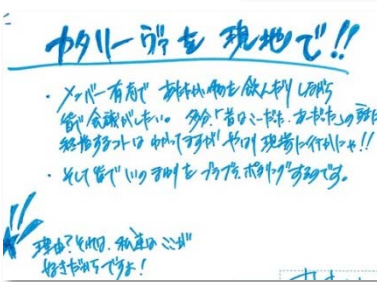 カタリーヴァを現地で!!
・メンバー有志であたたかい物を飲んだりしながら
皆で会議がしたい。多分「昔はこーだった、あーだった」の話に
終始するコトはわかってますが やはり現場に行かにゃ!!
・そして皆でいつのまにをブラブラ、ポタリングするのです。
理由?それは、私達はここが
好きだからですよ!